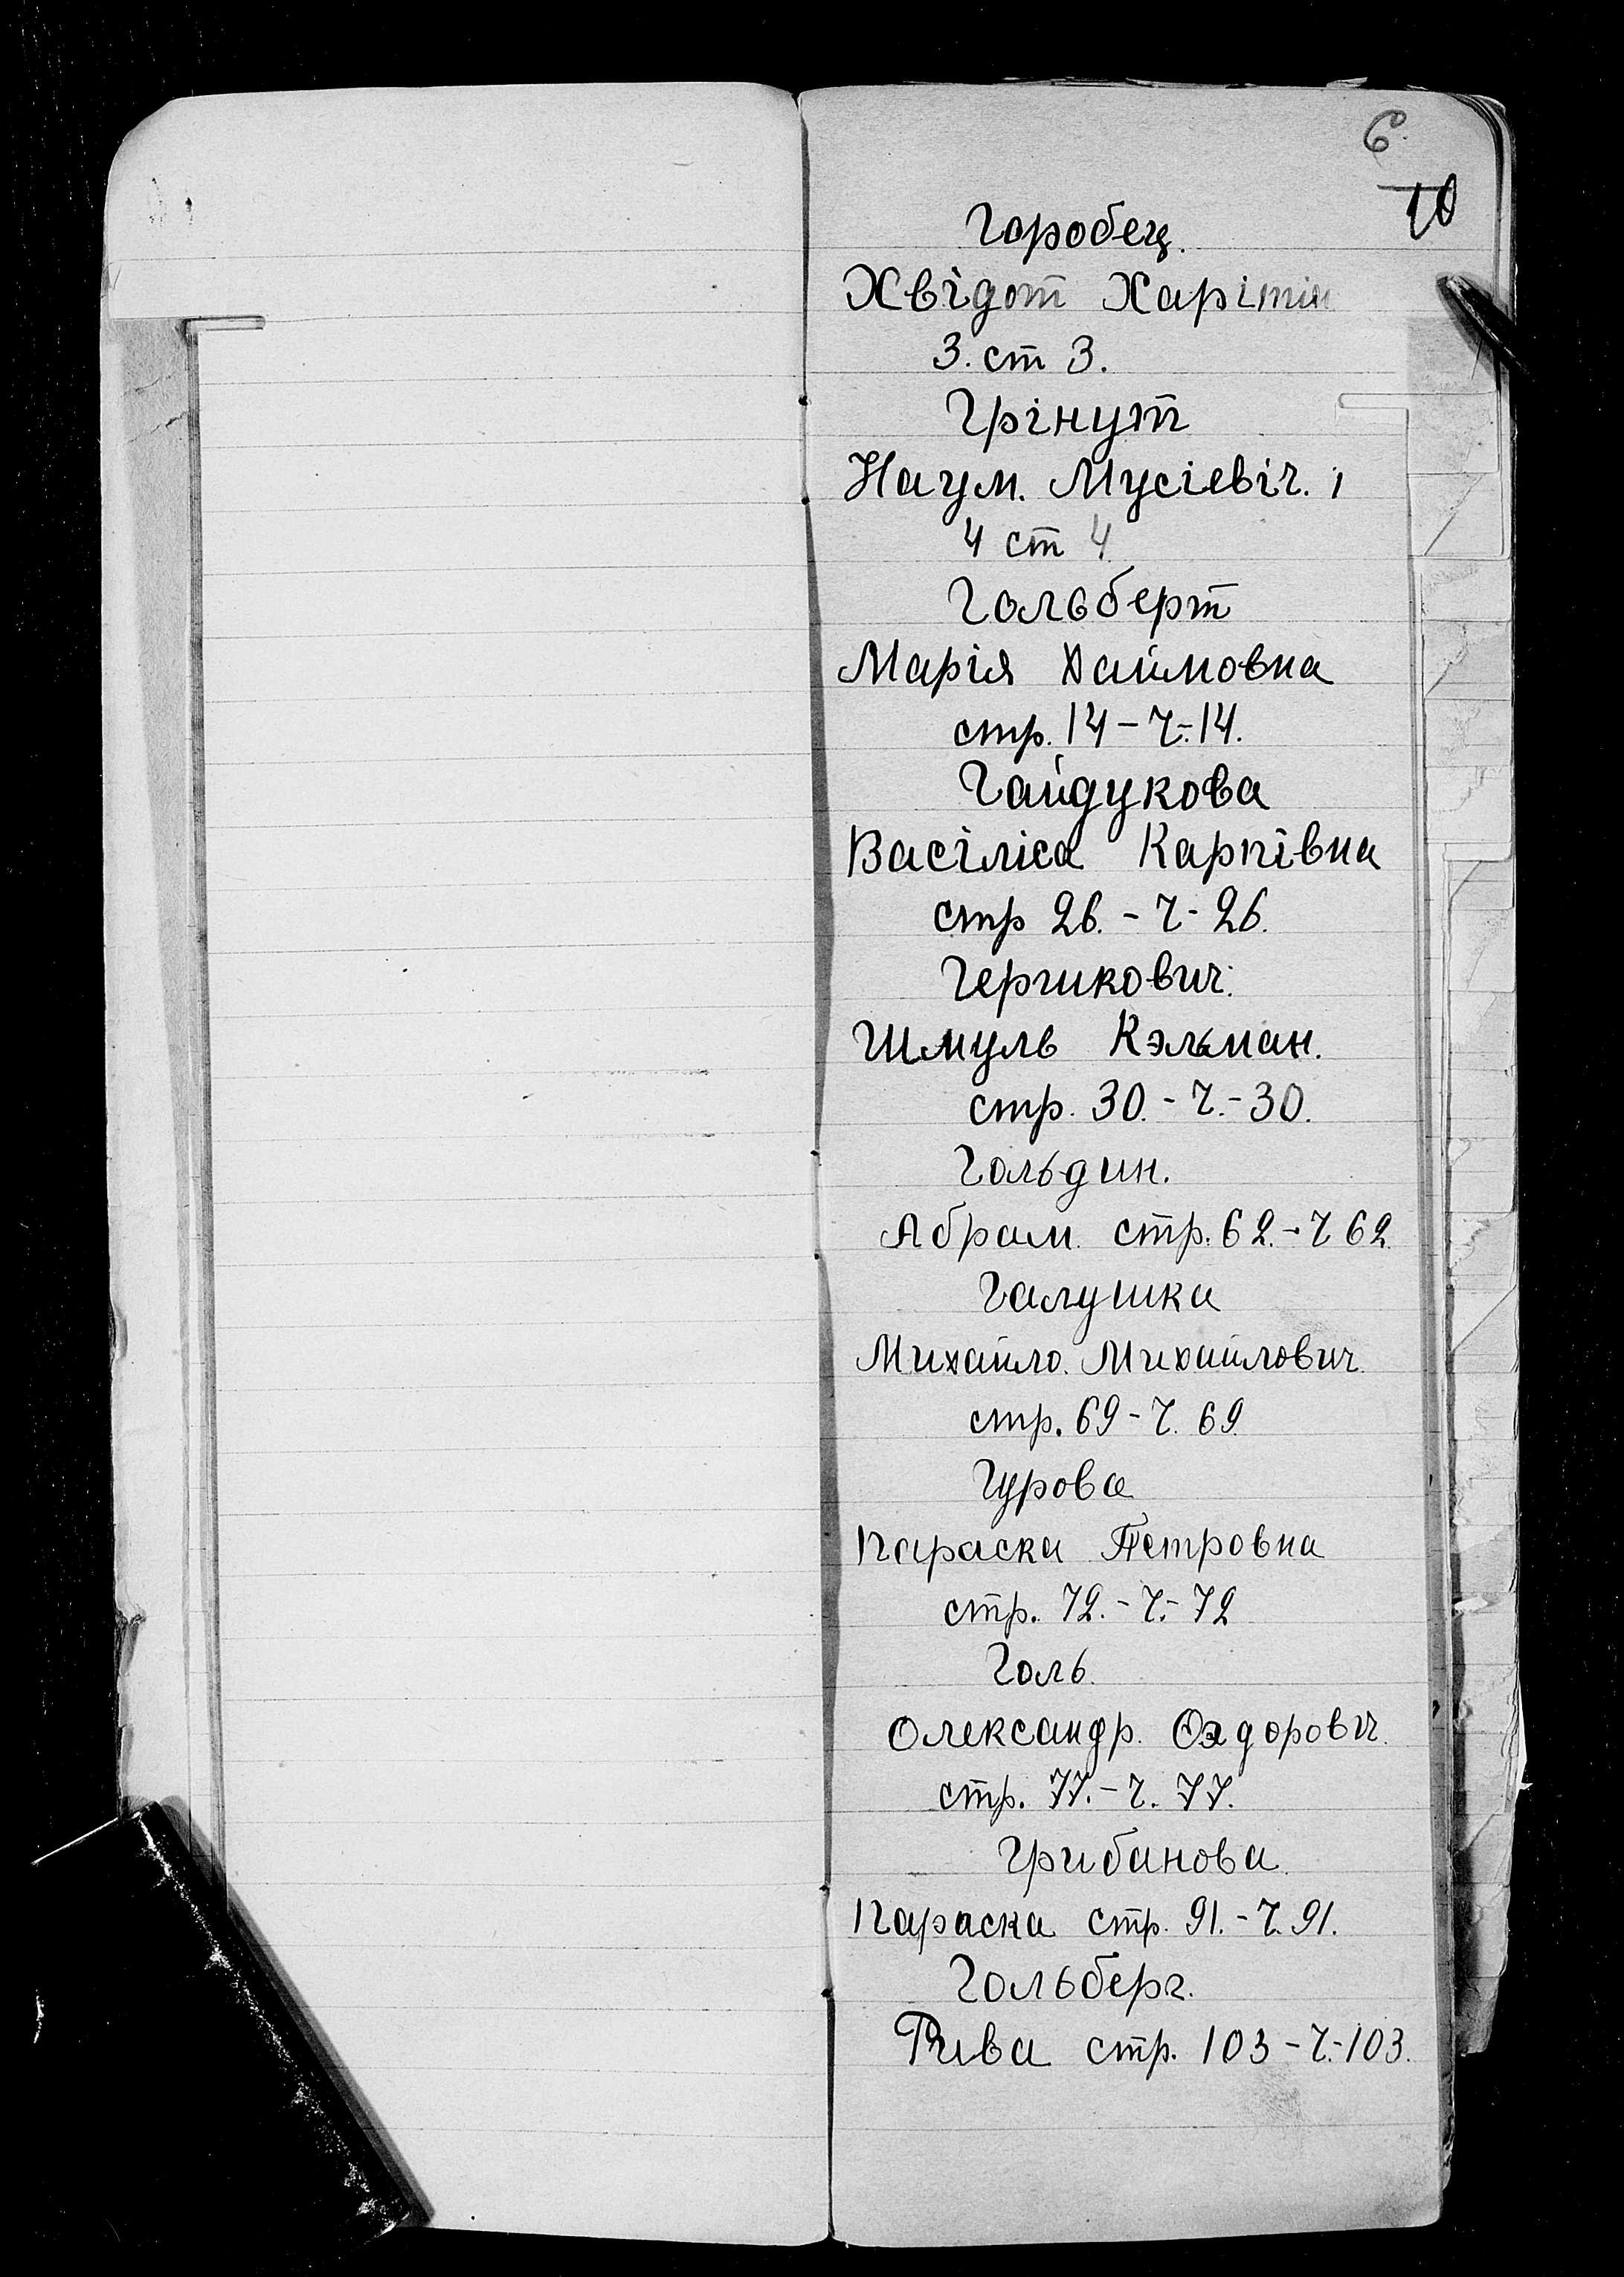 6
10
Горобец.
Хвідот Харітін
3. ст 3.
Грінут
Наум. Мусіевіч.
4 ст 4
Гольберт
Марія Хаймовна
стр. 14 - ч.-14.
Гайдукова
Васіліса Карпівна
стр 26. - ч - 26.
Гершкович.
Шмуль Кэльман.
стр. 30. - ч. - 30.
Гольдин.
Абрам. стр. 62. - ч 62.
Галушка
Михайло. Михайлович.
стр. 69 - ч. 69.
Гурова
Параска Петровна
стр. 72. - ч. - 72
Голь.
Олександр. Оядорович.
стр. 77. - ч. 77.
Грибанова.
Параска стр. 91. - ч. 91.
Гольберг.
Рива стр. 103 - ч.-103.